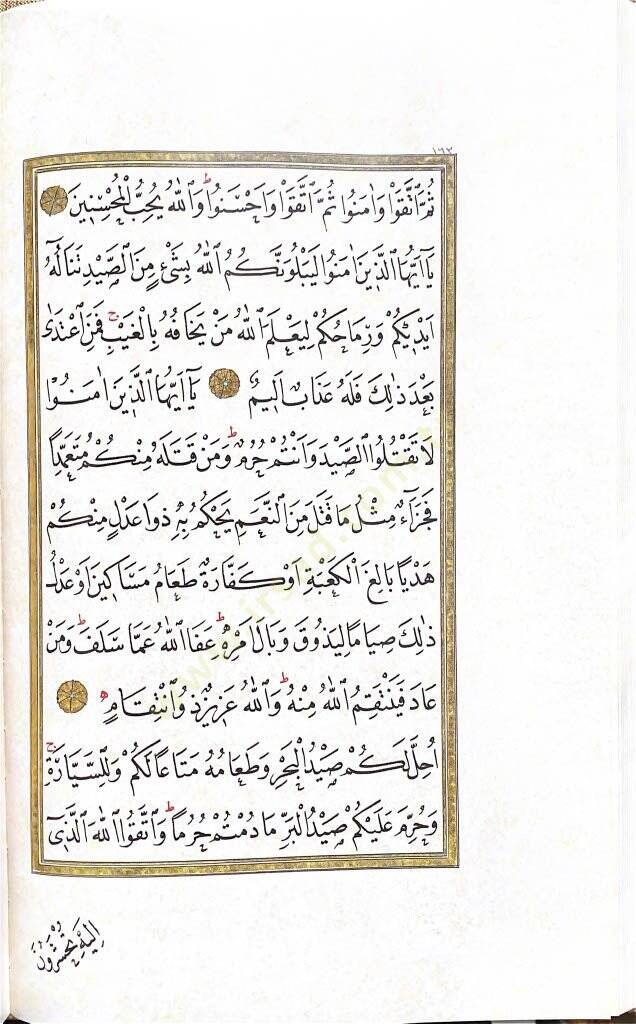 ١٦٢
ثُمَّ اتَّقَوْا وَاٰمَنُوا ثُمَّ اتَّقَوْا وَاَحْسَنُواۜ وَاللّٰهُ يُحِبُّ الْمُحْسِنِينَ
يَٓا اَيُّهَا الَّذِينَ اٰمَنُوا لَيَبْلُوَنَّكُمُ اللّٰهُ بِشَيْءٍ مِنَ الصَّيْدِ تَنَالُهُٓ
اَيْدِيكُمْ وَرِمَاحُكُمْ لِيَعْلَمَ اللّٰهُ مَنْ يَخَافُهُ بِالْغَيْبِۚ فَمَنِ اعْتَدٰى
بَعْدَ ذٰلِكَ فَلَهُ عَذَابٌ اَلِيمٌ يَٓا اَيُّهَا الَّذِينَ اٰمَنُوا
لَا تَقْتُلُوا الصَّيْدَ وَاَنْتُمْ حُرُمٌۜ وَمَنْ قَتَلَهُ مِنْكُمْ مُتَعَمِّدًا
فَجَزَٓاءٌ مِثْلُ مَا قَتَلَ مِنَ النَّعَمِ يَحْكُمُ بِهِ ذَوَا عَدْلٍ مِنْكُمْ
هَدْيًا بَالِغَ الْكَعْبَةِ اَوْ كَفَّارَةٌ طَعَامُ مَسَاكِينَ اَوْ عَدْلُ
ذٰلِكَ صِيَامًا لِيَذُوقَ وَبَالَ اَمْرِهِۜ عَفَا اللّٰهُ عَمَّا سَلَفَۜ وَمَنْ
عَادَ فَيَنْتَقِمُ اللّٰهُ مِنْهُۜ وَاللّٰهُ عَزِيزٌ ذُو انْتِقَامٍ
اُحِلَّ لَكُمْ صَيْدُ الْبَحْرِ وَطَعَامُهُ مَتَاعًا لَكُمْ وَلِلسَّيَّارَةِۚ
وَحُرِّمَ عَلَيْكُمْ صَيْدُ الْبَرِّ مَا دُمْتُمْ حُرُمًاۜ وَاتَّقُوا اللّٰهَ الَّذِٓي
اِلَيْهِ تُحْشَرُونَ